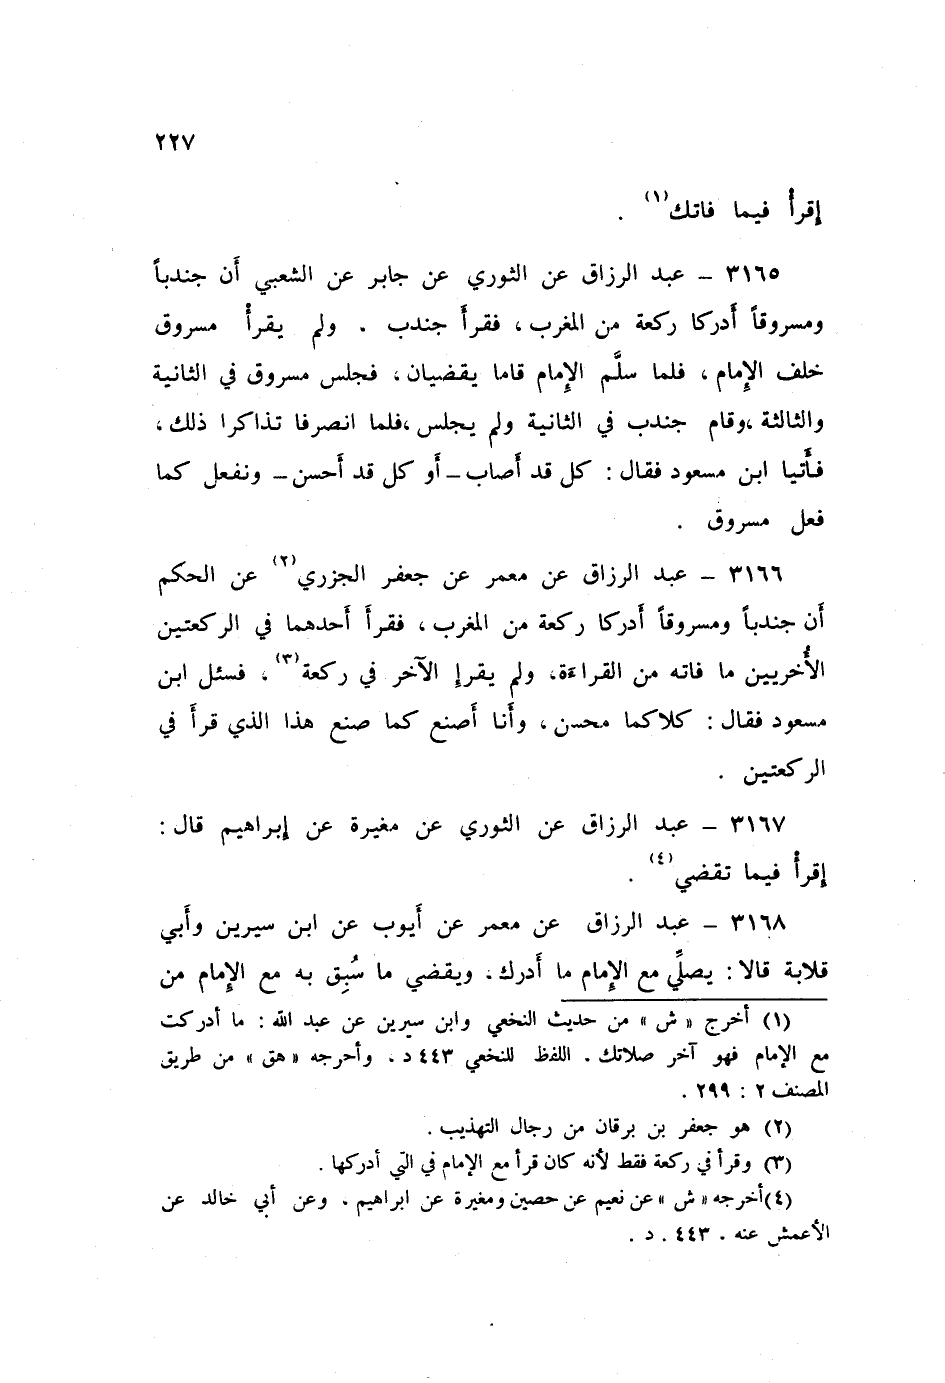 ٢٢٧
إقرأ فيما فاتك(١) .
٣١٦٥ – عبد الرزاق عن الثوري عن جابر عن الشعبي أن جندباً
ومسروقاً أدركا ركعة من المغرب ، فقرأ جندب . ولم يقرأ مسروق
خلف الإمام ، فلما سلَّم الإمام قاما يقضيان ، فجلس مسروق في الثانية
والثالثة ،وقام جندب في الثانية ولم يجلس ،فلما انصرفا تذاكرا ذلك ،
فأتيا ابن مسعود فقال : كل قد أصاب – أو كل قد أحسن – ونفعل كما
فعل مسروق .
٣١٦٦ – عبد الرزاق عن معمر عن جعفر الجزري(٢) عن الحكم
أن جندباً ومسروقاً أدركا ركعة من المغرب ، فقرأ أحدهما في الركعتين
الأُخريين ما فاته من القراءة، ولم يقرإ الآخر في ركعة(٣) ، فسئل ابن
مسعود فقال : كلاكما محسن ، وأنا أصنع كما صنع هذا الذي قرأ في
الركعتين .
٣١٦٧ – عبد الرزاق عن الثوري عن مغيرة عن إبراهيم قال :
إقرأ فيما تقضي(٤) .
٣١٦٨ – عبد الرزاق عن معمر عن أيوب عن ابن سيرين وأبي
قلابة قالا : يصلِّي مع الإمام ما أدرك، ويقضي ما سُبِق به مع الإمام من
(١) أخرج « ش » من حديث النخعي وابن سيرين عن عبد الله : ما أدركت
مع الإمام فهو آخر صلاتك . اللفظ للنخعي ٤٤٣ د . وأحرجه « هق » من طريق
المصنف ٢ : ٢٩٩ .
(٢) هو جعفر بن برقان من رجال التهذيب .
(٣) وقرأ في ركعة فقط لأنه كان قرأ مع الإمام في التي أدركها .
(٤)أخرجه« ش »عن نعيم عن حصين ومغيرة عن ابراهيم . وعن أبي خالد عن
الأعمش عنه . ٤٤٣ . د .